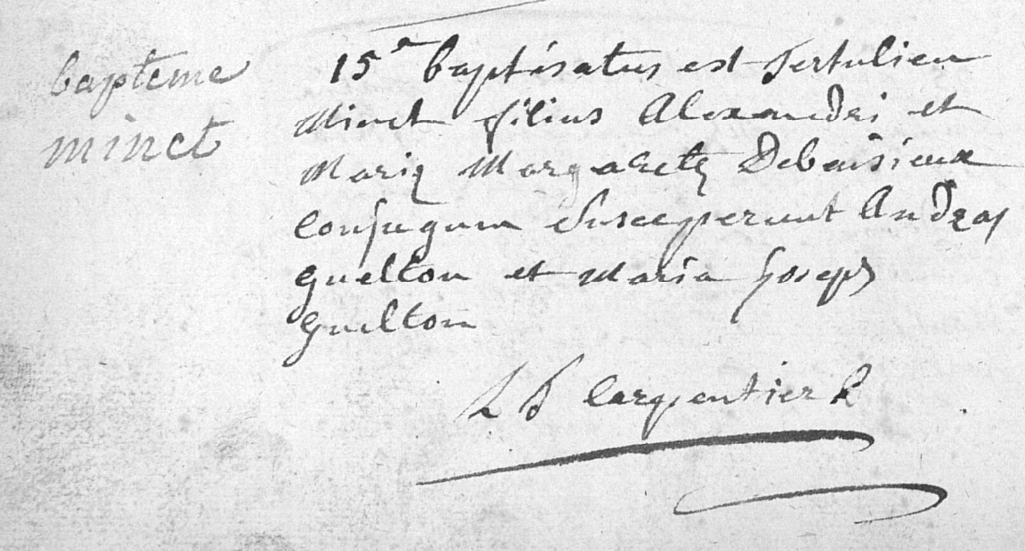 bapteme
minet
15ª baptisatus est Tertulien
Minet filius Alexandri et
Mariæ Margaretæ Debaisieux
conjugum Susceperunt Andreas
Guelton et Maria Joseph
Guelton
L J Carpentier